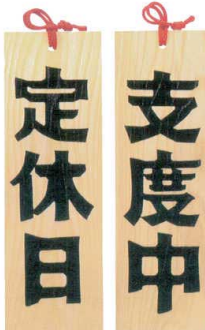 支度中
定休日